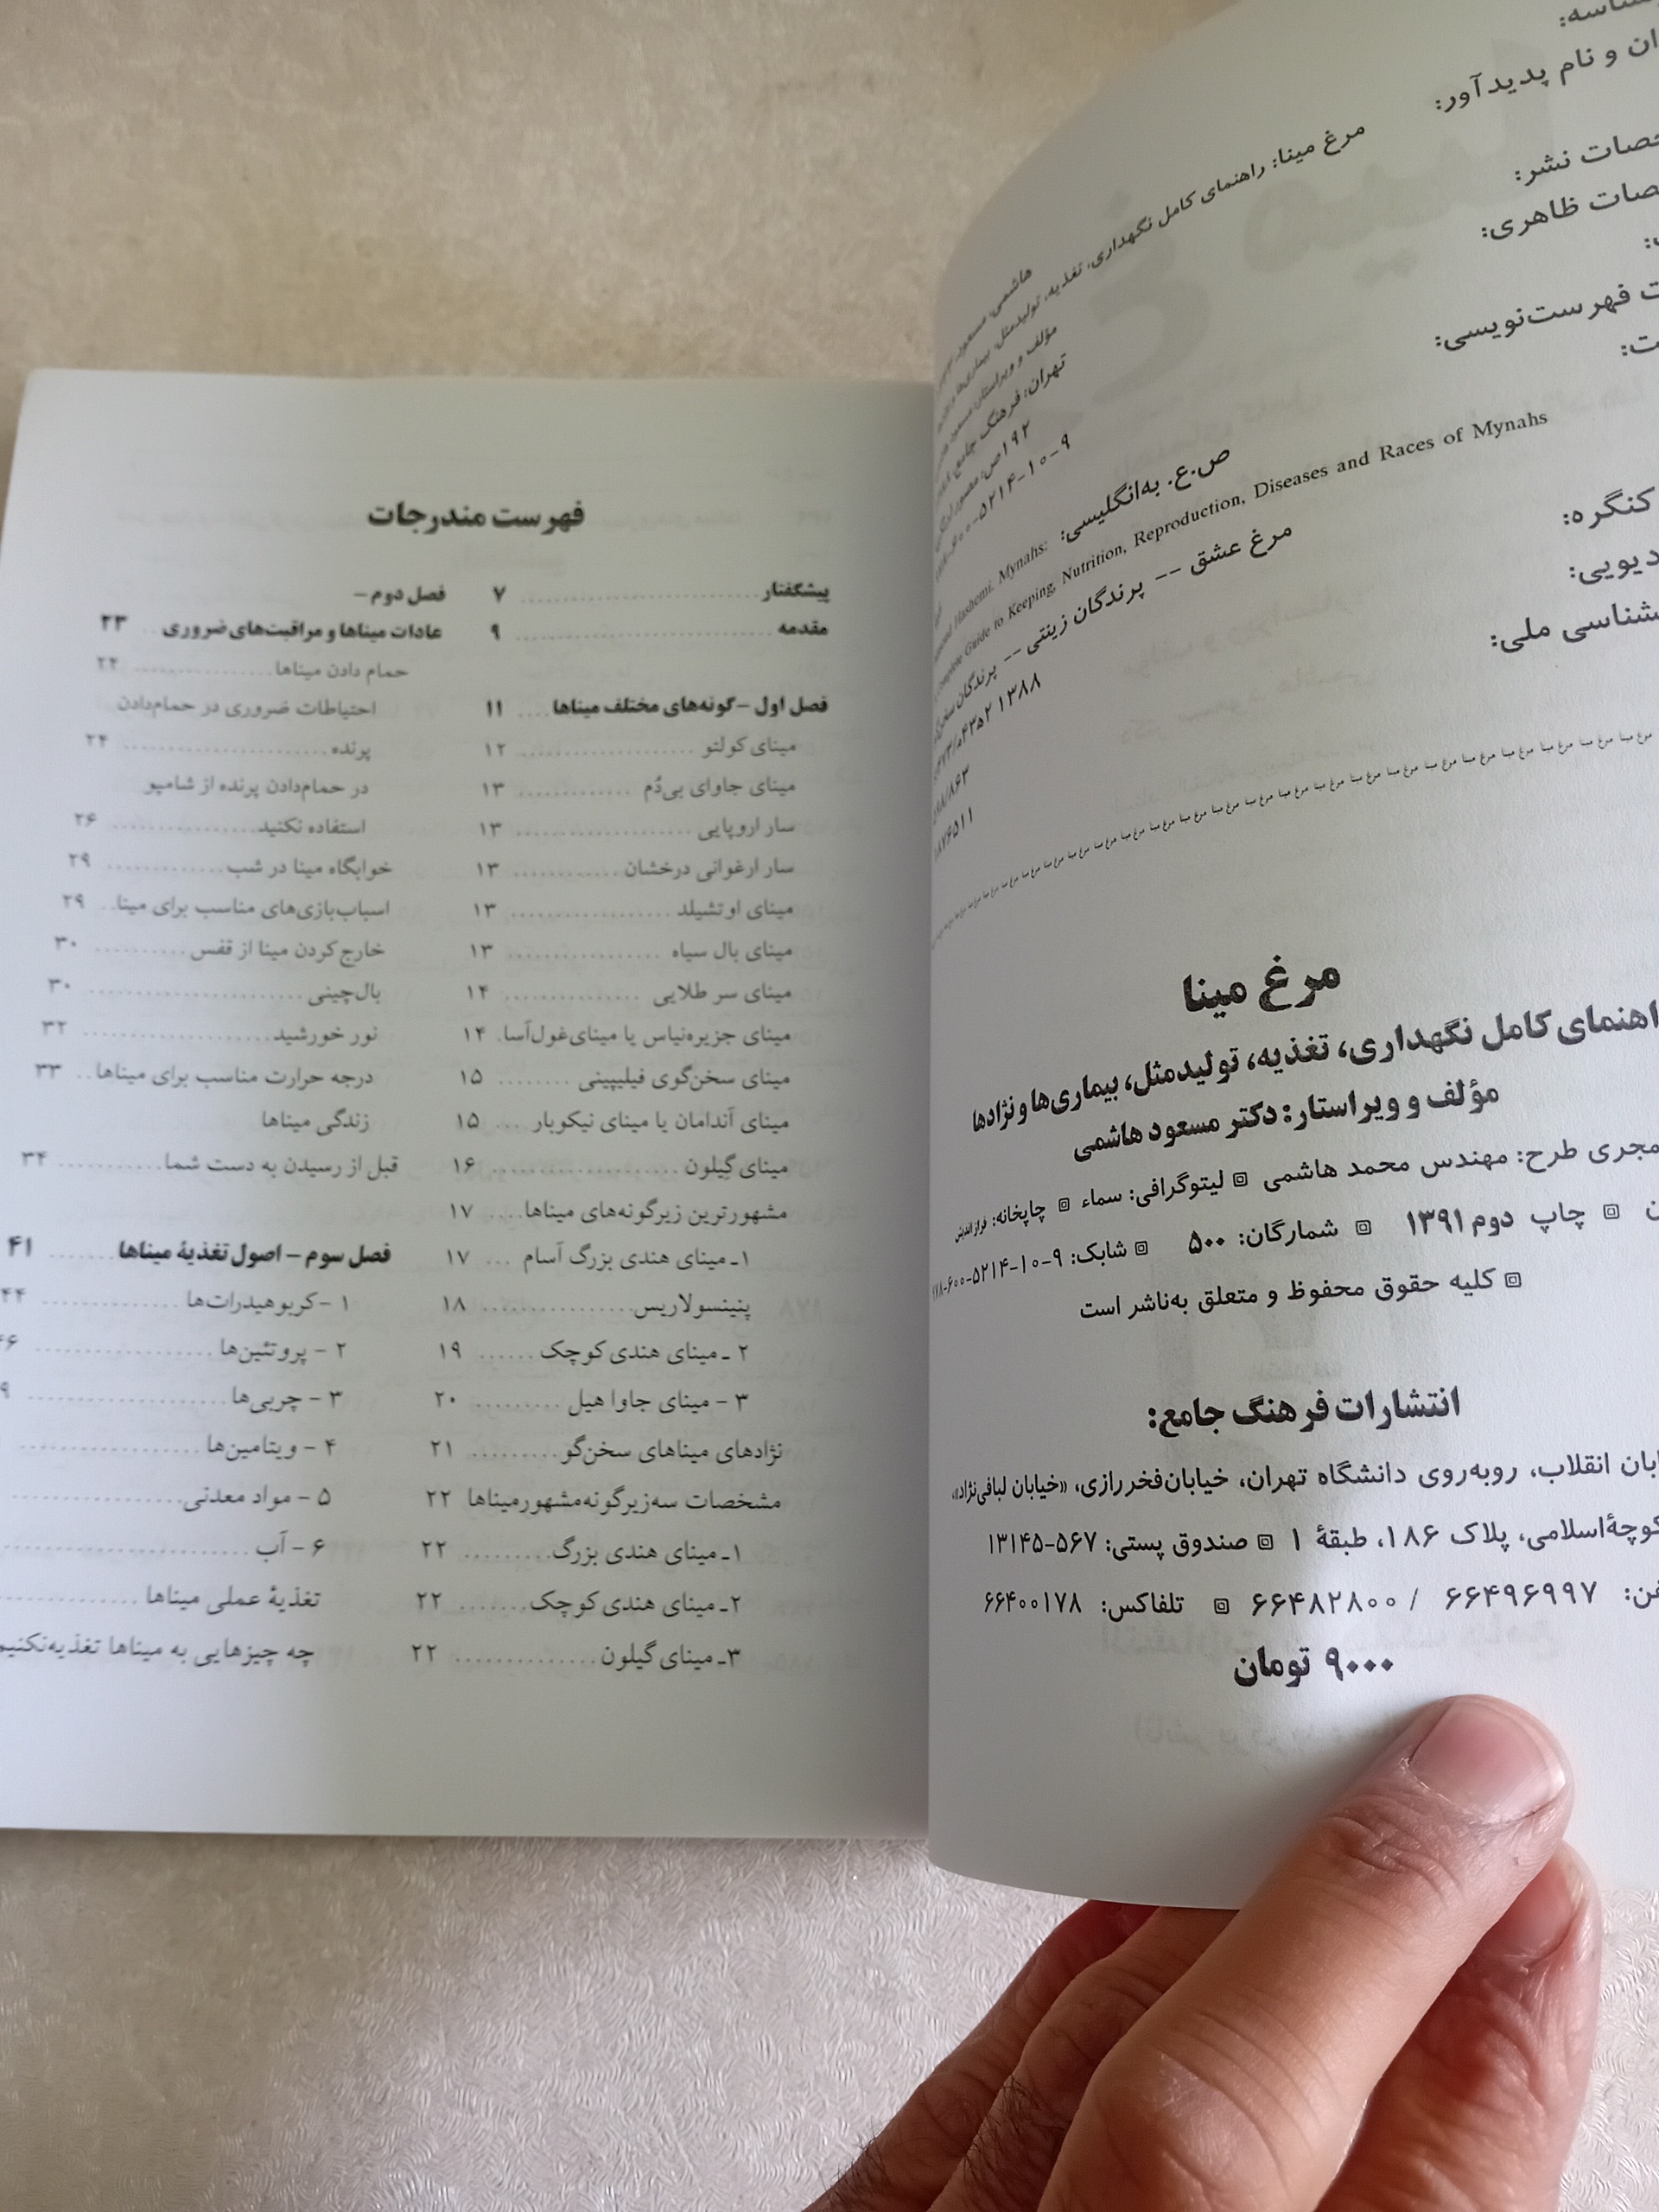 و نام پدیدآور:
مرغ مینا: راهنمای کامل نگهداری، تغذیه، تولیدمثل، بیماری‌ها و
نشر:
ظاهری:
هاشمی، مسعود
مؤلف و ویراستار مسعود
تهران: فرهنگ جامع
۱۹۲ص: مصور
فهرست‌نویسی:
ص.ع. به‌انگلیسی:
Hashemi. Mynahs:
Complete Guide to Keeping, Nutrition, Reproduction, Diseases and Races of Mynahs
مرغ عشق -- پرندگان زینتی -- پرندگان
کنگره:
۱۳۸۸
دیویی:
ملی:
۱۸۷۶۵۱۱
مرغ مینا مرغ مینا مرغ مینا مرغ مینا مرغ مینا مرغ مینا مرغ مینا مرغ مینا مرغ مینا
مرغ مینا
کامل نگهداری، تغذیه، تولیدمثل، بیماری‌ها و نژادها
مؤلف و ویراستار: دکتر مسعود هاشمی
مجری طرح: مهندس محمد هاشمی ▣ لیتوگرافی: سماء ▣ چاپخانه: فرازاندیش
▣ چاپ دوم ۱۳۹۱ ▣ شمارگان: ۵۰۰ ▣ شابک: ۹-۱۰-۵۲۱۴-۶۰۰
▣ کلیه حقوق محفوظ و متعلق به‌ناشر است
انتشارات فرهنگ جامع:
انقلاب، روبه‌روی دانشگاه تهران، خیابان‌فخررازی، «خیابان لبافی‌نژاد»،
کوچهٔ‌اسلامی، پلاک ۱۸۶، طبقهٔ ۱ ▣ صندوق پستی: ۵۶۷-۱۳۱۴۵
۶۶۴۹۶۹۹۷ / ۶۶۴۸۲۸۰۰ ▣ تلفاکس: ۶۶۴۰۰۱۷۸
۹۰۰۰ تومان
فهرست مندرجات
پیشگفتار ........ ۷
مقدمه ........ ۹
فصل اول – گونه‌های مختلف میناها .... ۱۱
مینای کولتو ........ ۱۲
مینای جاوای بی‌دُم ........ ۱۳
سار اروپایی ........ ۱۳
سار ارغوانی درخشان ........ ۱۳
مینای اوتشیلد ........ ۱۳
مینای بال سیاه ........ ۱۳
مینای سر طلایی ........ ۱۴
مینای جزیره‌نیاس یا مینای‌غول‌آسا. ۱۴
مینای سخن‌گوی فیلیپینی ........ ۱۵
مینای آندامان یا مینای نیکوبار ... ۱۵
مینای گیلون ........ ۱۶
مشهورترین زیرگونه‌های میناها .... ۱۷
۱ـ مینای هندی بزرگ آسام ... ۱۷
پنینسولاریس ........ ۱۸
۲ ـ مینای هندی کوچک ...... ۱۹
۳ – مینای جاوا هیل ........ ۲۰
نژادهای میناهای سخن‌گو ........ ۲۱
مشخصات سه‌زیرگونه‌مشهورمیناها ۲۲
۱ـ مینای هندی بزرگ ........ ۲۲
۲ـ مینای هندی کوچک ....... ۲۲
۳ـ مینای گیلون ........ ۲۲
فصل دوم –
عادات میناها و مراقبت‌های ضروری .. ۲۳
حمام دادن میناها ........ ۲۴
احتیاطات ضروری در حمام‌دادن
پرنده ........ ۲۴
در حمام‌دادن پرنده از شامپو
استفاده نکنید ........ ۲۶
خوابگاه مینا در شب ........ ۲۹
اسباب‌بازی‌های مناسب برای مینا .. ۲۹
خارج کردن مینا از قفس ........ ۳۰
بال‌چینی ........ ۳۰
نور خورشید ........ ۳۲
درجه حرارت مناسب برای میناها .. ۳۳
زندگی میناها
قبل از رسیدن به دست شما ........ ۳۴
فصل سوم – اصول تغذیهٔ میناها ..... ۴۱
۱ – کربوهیدرات‌ها ........ ۴۴
۲ – پروتئین‌ها ........
۳ – چربی‌ها ........
۴ – ویتامین‌ها ........
۵ – مواد معدنی ........
۶ – آب ........
تغذیهٔ عملی میناها ........
چه چیزهایی به میناها تغذیه‌نکنیم